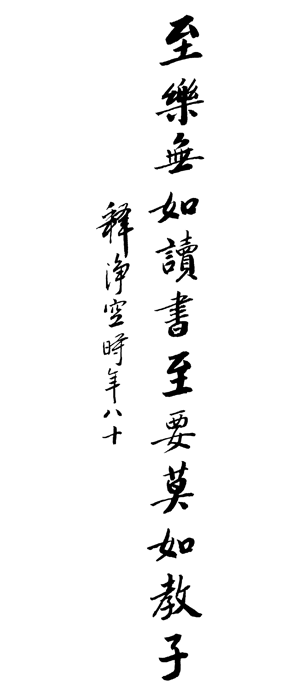 至樂無如讀書至要莫如教子
釋淨空時年八十